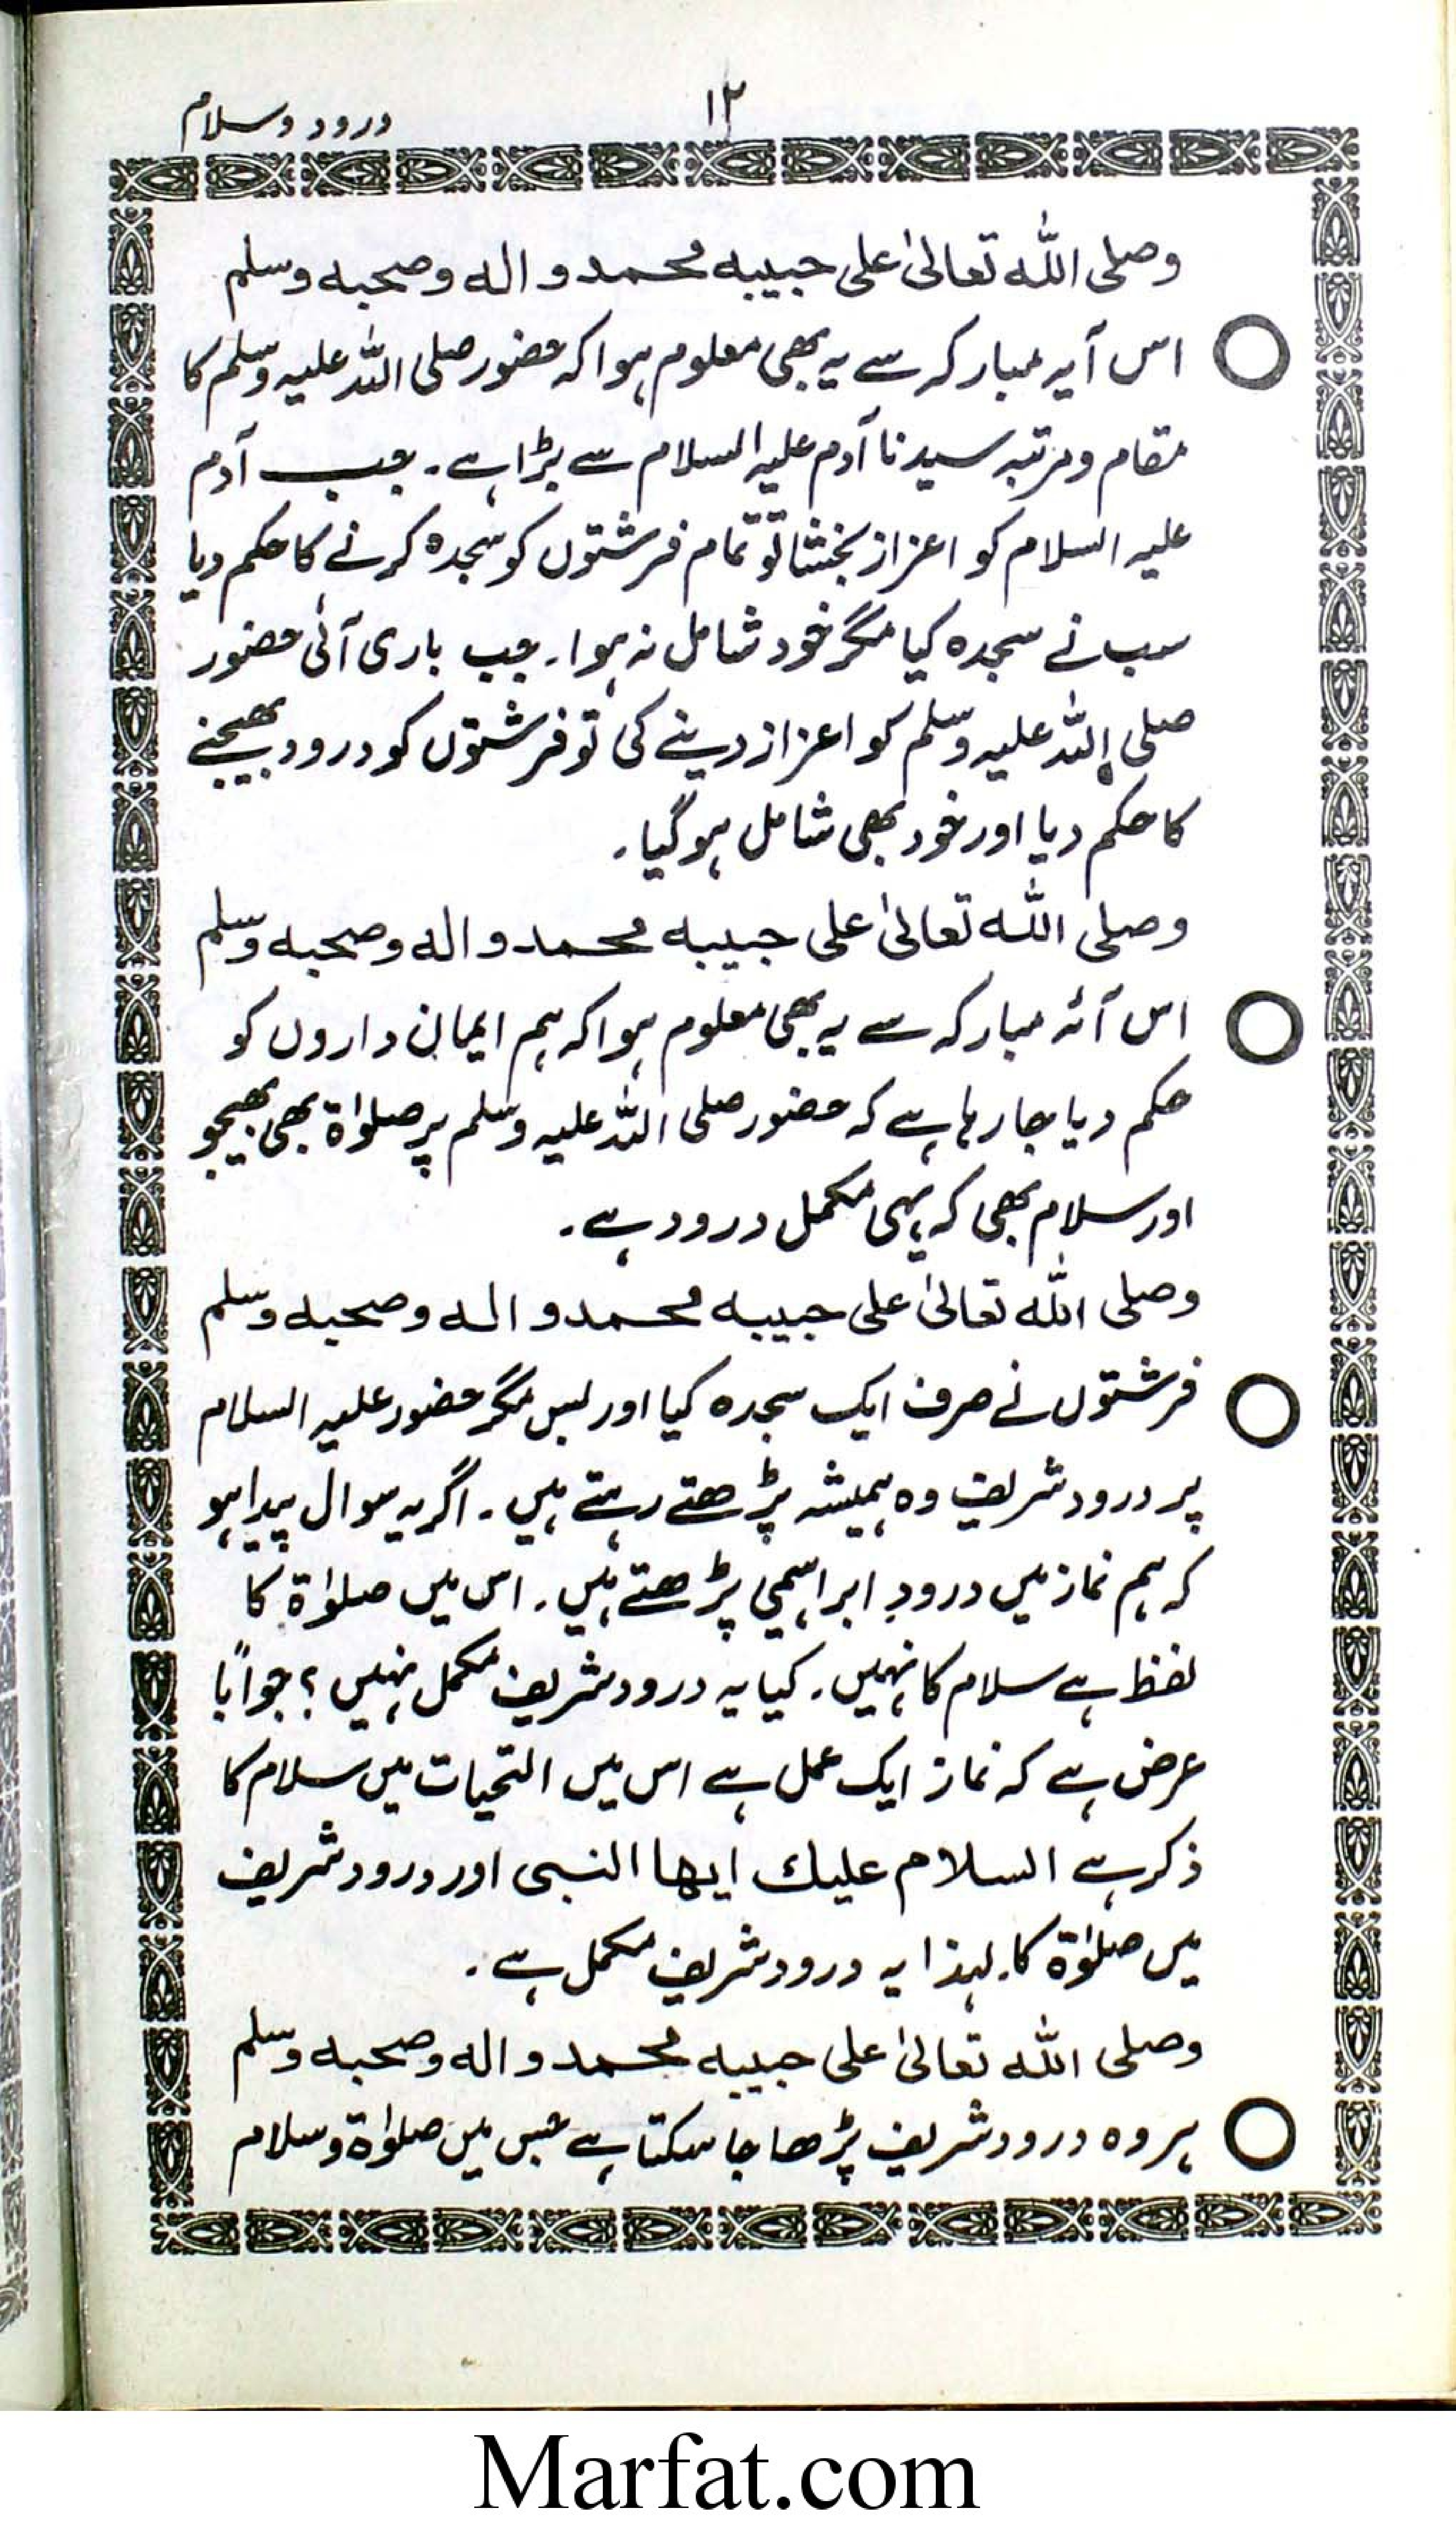 ۱۲
درود وسلام
وصلی اللّٰہ تعالیٰ علی حبیبہ محمد والہ وصحبہ وسلم
اس آیہ مبارکہ سے یہ بھی معلوم ہوا کہ حضور صلی اللہ علیہ وسلم کا
مقام ومرتبہ سیدنا آدم علیہ السلام سے بڑا ہے۔ جب آدم
علیہ السلام کو اعزاز بخشا تو تمام فرشتوں کو سجدہ کرنے کا حکم دیا
سب نے سجدہ کیا مگر خود شامل نہ ہوا۔ جب باری آئی حضور
صلی اللہ علیہ وسلم کو اعزاز دینے کی تو فرشتوں کو درود بھیجنے
کا حکم دیا اور خود بھی شامل ہوگیا۔
وصلی اللّٰہ تعالیٰ علی حبیبہ محمد والہ وصحبہ وسلم
اس آئہ مبارکہ سے یہ بھی معلوم ہوا کہ ہم ایمان داروں کو
حکم دیا جا رہا ہے کہ حضور صلی اللہ علیہ وسلم پر صلوٰۃ بھی بھیجو
اور سلام بھی کہ یہی مکمل درود ہے۔
وصلی اللّٰہ تعالیٰ علی حبیبہ محمد والہ وصحبہ وسلم
فرشتوں نے صرف ایک سجدہ کیا اور بس مگر حضور علیہ السلام
پر درود شریف وہ ہمیشہ پڑھتے رہتے ہیں۔ اگر یہ سوال پیدا ہو
کہ ہم نماز میں درودِ ابراہیمی پڑھتے ہیں۔ اس میں صلوٰۃ کا
لفظ ہے سلام کا نہیں۔ کیا یہ درود شریف مکمل نہیں؟ جواباً
عرض ہے کہ نماز ایک عمل ہے اس میں التحیات میں سلام کا
ذکر ہے السلام علیك ایھا النبی اور درود شریف
میں صلوٰۃ کا۔ لہٰذا یہ درود شریف مکمل ہے۔
وصلی اللّٰہ تعالیٰ علی حبیبہ محمد والہ وصحبہ وسلم
ہر وہ درود شریف پڑھا جا سکتا ہے جس میں صلوٰۃ وسلام
Marfat.com